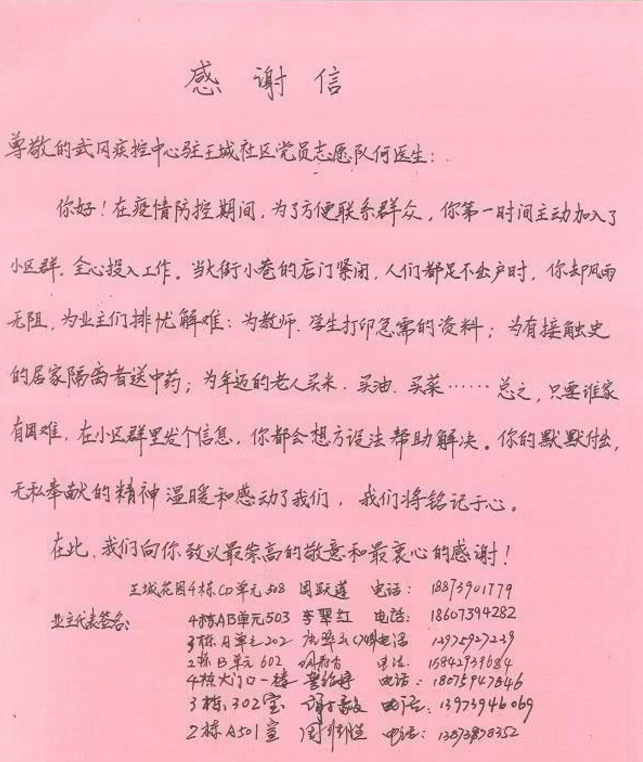 感谢信
尊敬的武冈疾控中心驻王城社区党员志愿队何医生:
你好!在疫情防控期间,为了方便联系群众,你第一时间主动加入了
小区群.全心投入工作。当大街小巷的店门紧闭,人们都足不出户时,你却风雨
无阻,为业主们排忧解难:为教师.学生打印急需的资料;为有接触史
的居家隔离者送中药;为年迈的老人买米.买油.买菜……总之,只要谁家
有困难,在小区群里发个信息,你都会想方设法帮助解决。你的默默付出,
无私奉献的精神温暖和感动了我们,我们将铭记于心。
在此,我们向你致以最崇高的敬意和最衷心的感谢!
王城花园4栋CD单元508 周跃莲 电话: 18873901779
业主代表签名:
4栋AB单元503 李翠红 电话: 18607394282
3栋A单元202 电话
2栋B单元602 电话 15842939684
4栋大门口一楼 电话: 18075947846
3栋,302室 电话: 13973946069
2栋A501室 电话: 13873878352